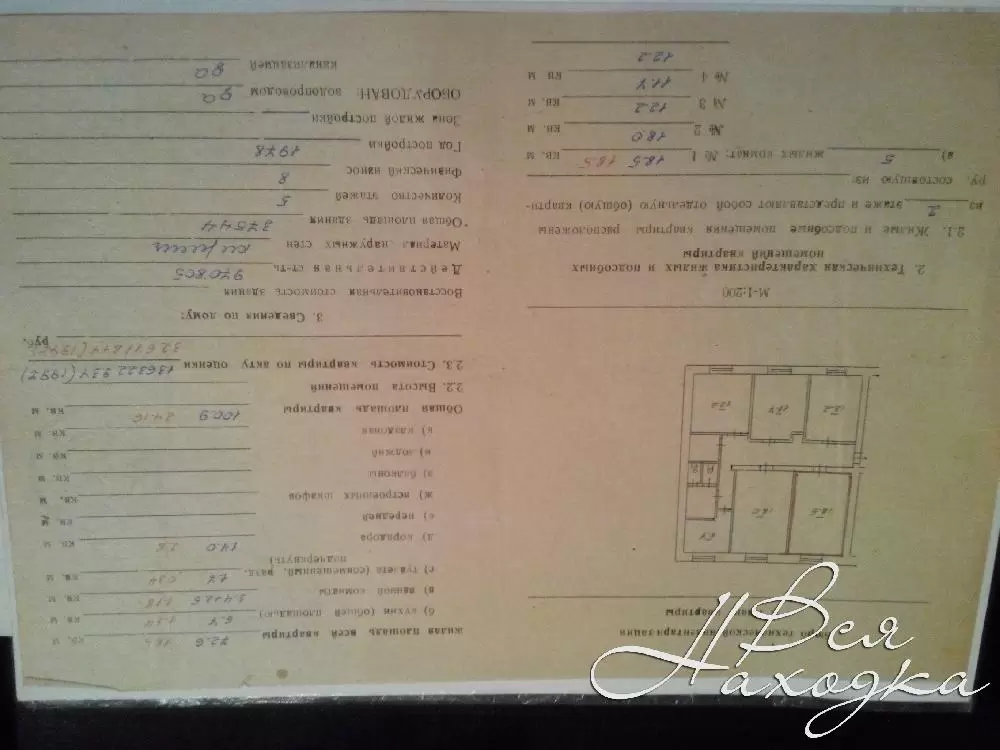 бюро технической инвентаризации
квартиры
6.4
18.0
18.5
12.2
11.7
12.2
М-1:200
2. Техническая характеристика жилых и подсобных
помещений квартиры
2.1. Жилые и подсобные помещения квартиры расположены
на 2 этаже и представляют собой отдельную (общую) кварти-
ру, состоящую из:
а) 5 жилых комнат: № 1 18.5 18.5 кв. м
№ 2 18.0 кв. м
№ 3 12.2 кв. м
№ 4 11.7 кв м
12.2
жилая площадь всей квартиры 72.6 18.5 кв. м
б) кухни (общей площадью) 6.4 кв. м
в) ванной комнаты кв. м
г) туалета (совмещенный, разд. 1.7 кв. м
подчеркнуть)
д) коридора 14.0 кв. м
е) передней кв. м
ж) встроенных шкафов кв. м
з) балконы кв. м
и) лоджий кв. м
к) кладовая кв. м
Общая площадь квартиры 100.9 24.16 кв. м
2.2. Высота помещений
2.3. Стоимость квартиры по акту оценки 136322934 (1997)
руб.
3. Сведения по дому:
Восстановительная стоимость здания
Действительная ст-ть 970805
Материал наружных стен кирпич
Общая площадь здания 3754.4
Количество этажей 5
Физический износ 8
Год постройки 1978
Зона жилой постройки
ОБОРУДОВАН: водопроводом да
канализацией да
Вся
Находка